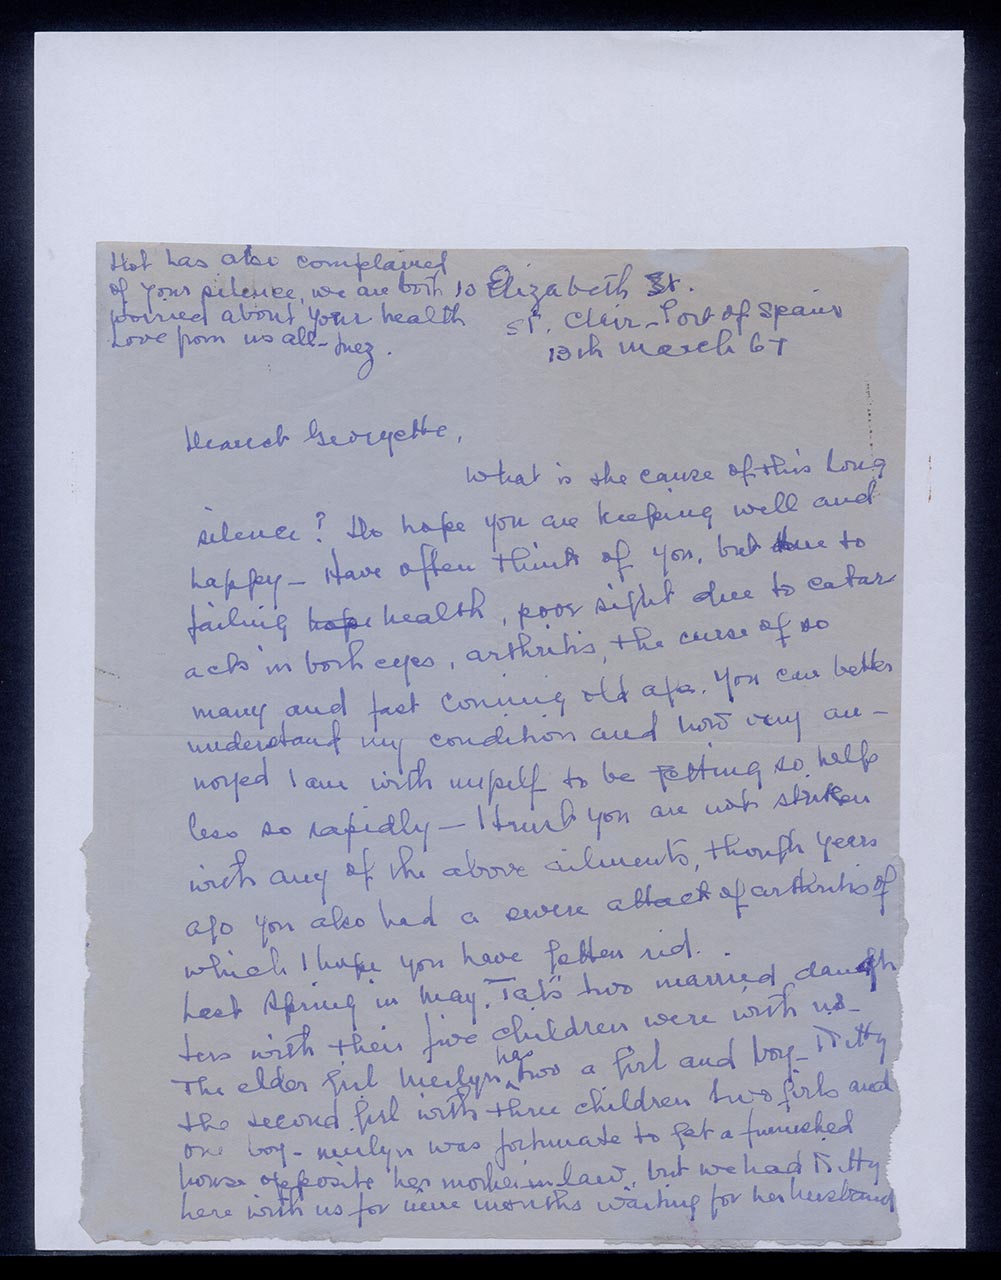 has also complained
of your silence, we are both
worried about your health
Love from us all - Inez.
10 Elizabeth St.
St. Clair - Port of Spain
13th March 67
Dearest Georgette,
What is the cause of this long
silence? Do hope you are keeping well and
happy - Have often think of you, but due to
failing hope health, poor sight due to catar
acts in both eyes, arthritis, the curse of so
many and fast coming old age. You can better
understand my condition and how very an-
noyed I am with myself to be getting so help
less so rapidly - I trust you are not striken
with any of the above ailments, though years
ago you also had a severe attack of arthritis of
which I hope you have gotten rid.
Last Spring in May, Tat's two married daugh
ters with their five children were with us -
The elder girl Merlyn has two a girl and boy -
the second girl with three children two girls and
one boy - Merlyn was fortunate to get a furnished
house opposite her mother in law, but we had
here with us for nine months waiting for her husband